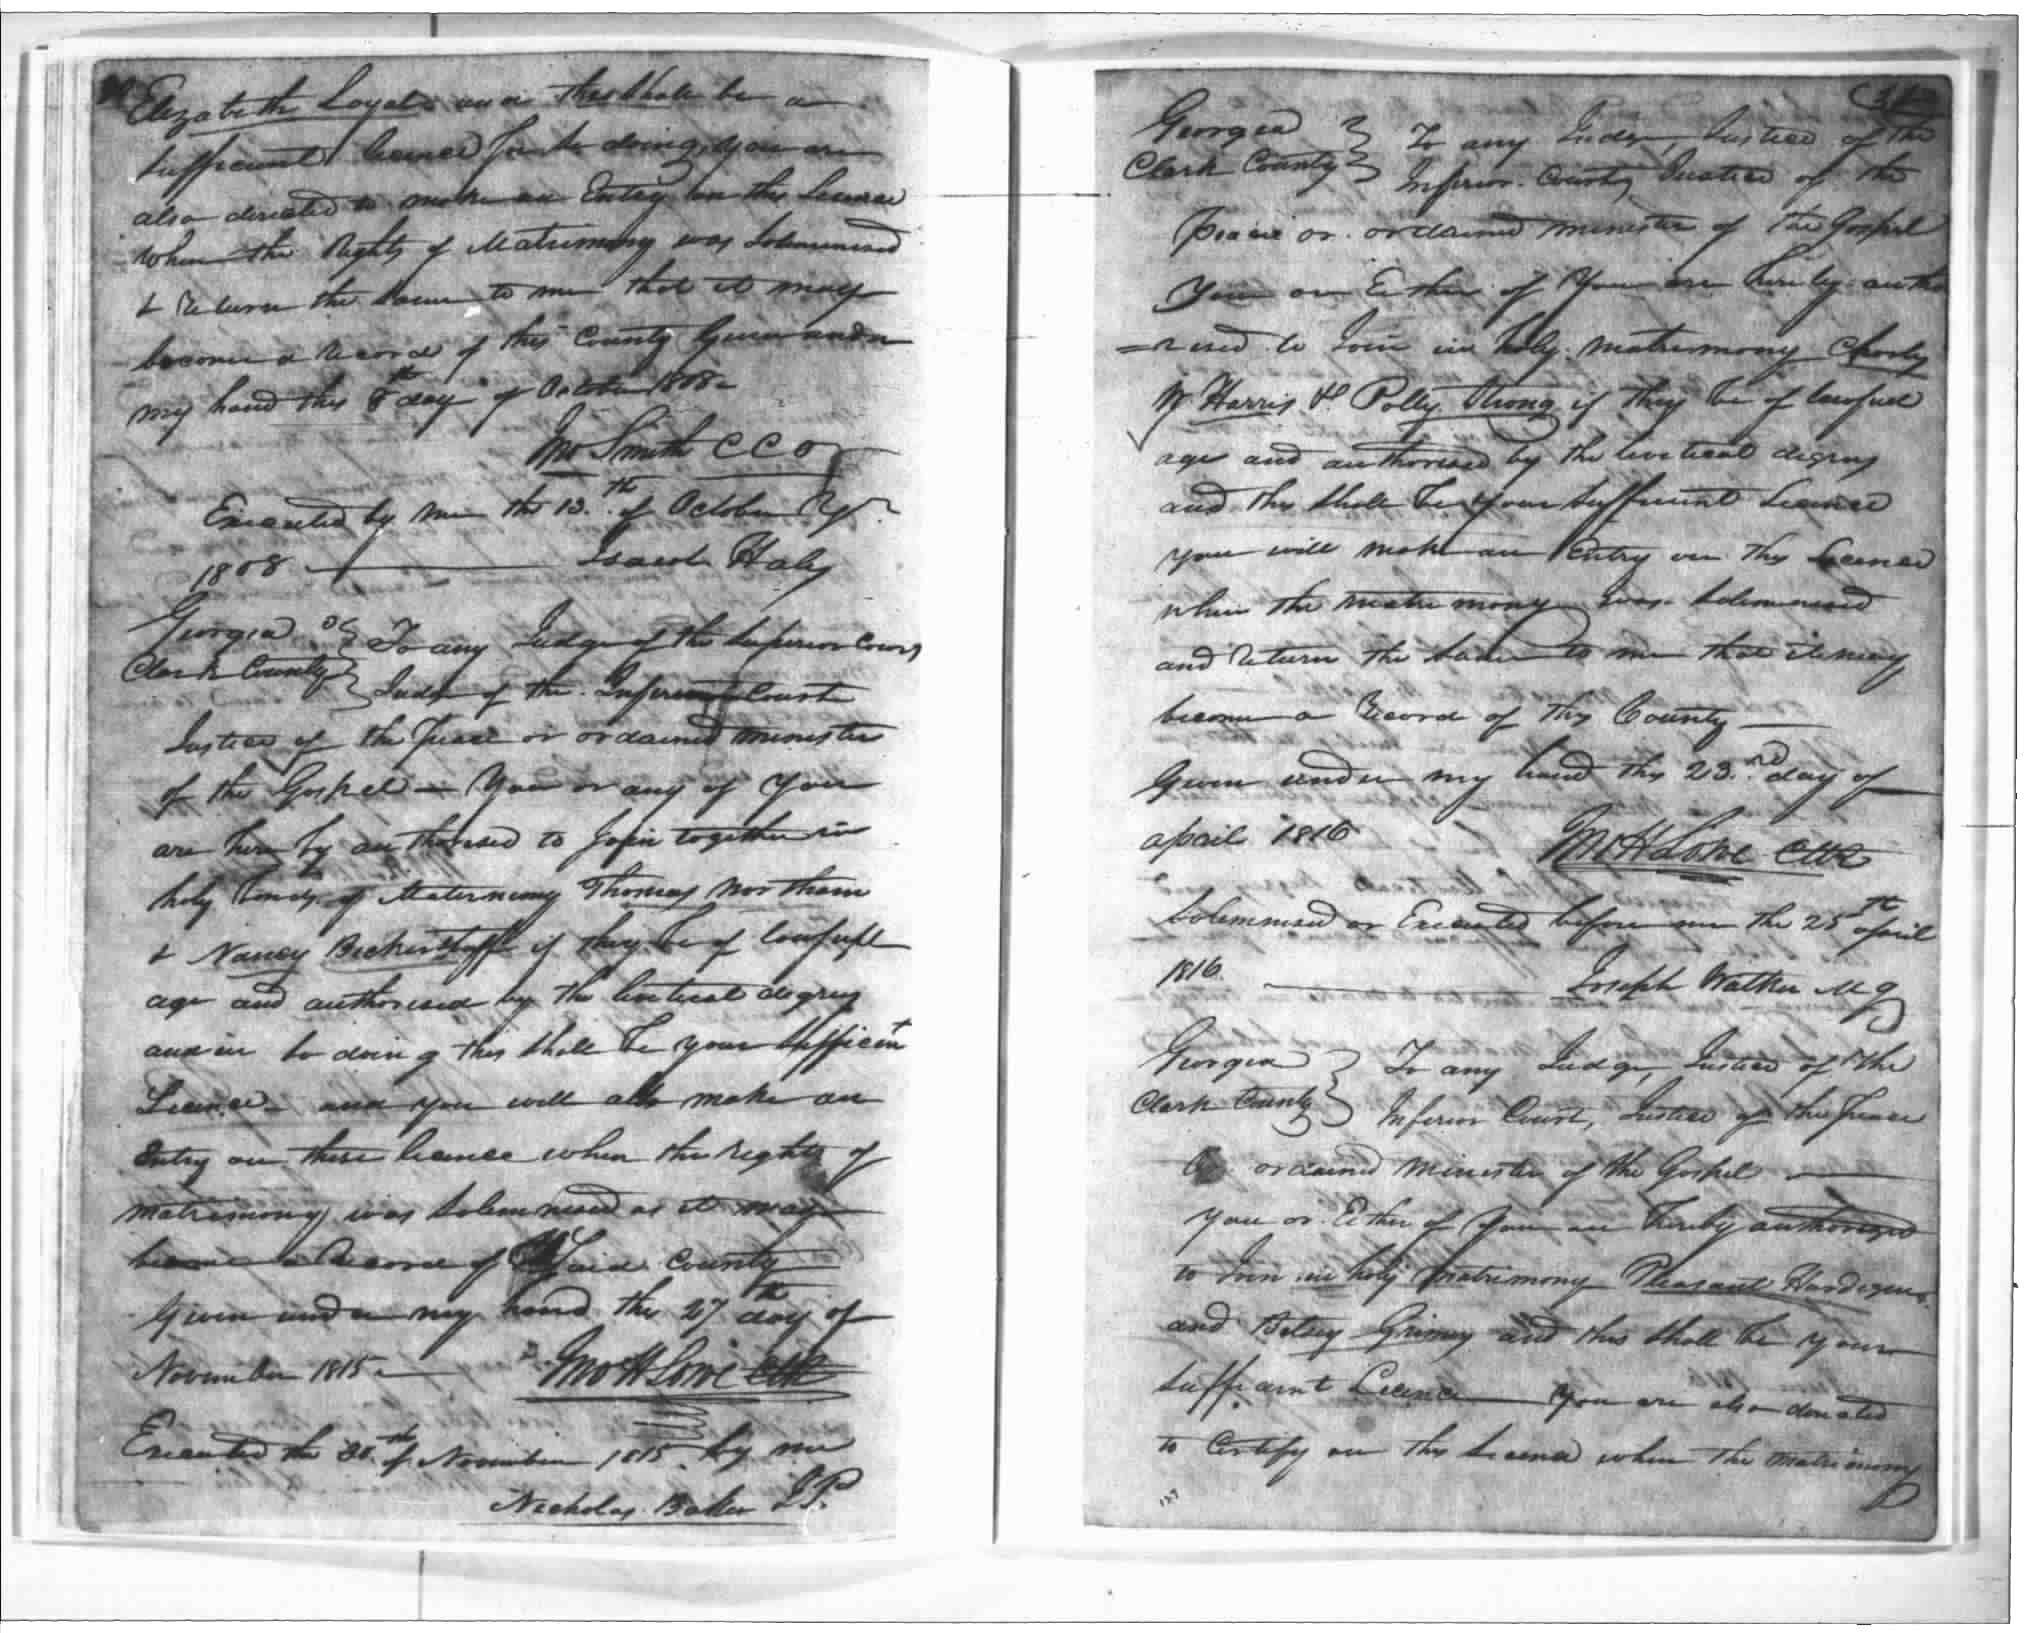 Elizabeth Loyd and this shall be a
sufficient licence for so doing, you are
also directed to make an Entry on this Licence
when the Rights of Matrimony was Solemnised
& Return the same to me that it may
become a record of this County Given under
my hand this 8th day of October 1808
Jno Smith CCO
Executed by me the 13.th of October
1808 Haley
Georgia } To any Judge of the Superior Court
Clark County } Judge of the Inferior Court
Justice of the Peace or ordained minister
of the Gospel — You or any of You
are here by authorised to Join together in
holy bonds of Matermony Thomas Northam
& Nancy Bickerstaff if they be of lawfull
age and authorised by the livetical degrees
and in so doing this shall be your sufficient
Licence and you will also make an
Entry on these licence when the rights of
matrimony was solemnised as it may
become a Record of Said County
Given under my hand the 27th day of
November 1815 Jno H Lowe Clk
Executed the 30.th of November 1815 by me
Nicholas Baker J.P.
Georgia } To any Judge, Justice of the
Clark County } Inferior Court, Justice of the
peace or ordained minister of the Gospel
You or Either of You are hereby autho
=rised to Join in holy matrimony Charly
W Harris & Polly Strong if they be of lawful
age and authorised by the livetical degrees
and this shall be your sufficient Licence
you will make an Entry on this Licence
when the matrimony was solemnised
and return the same to me that it may
become a Record of this County —
Given under my hand this 23.rd day of
april 1816 Jno H Lowe Clk
Solemnised or Executed before me the 25th april
1816. Joseph Walker M G
Georgia } To any Judge, Justice of the
Clark County } Inferior Court, Justice of the Peace
Or ordained Minister of the Gospel —
you or Either of You are hereby authorized
to Join in holy matrimony Pleasant
and Betsey Grimes and this shall be your
sufficient Licence — You are also directed
to Certify on this licence when the matrimony
127